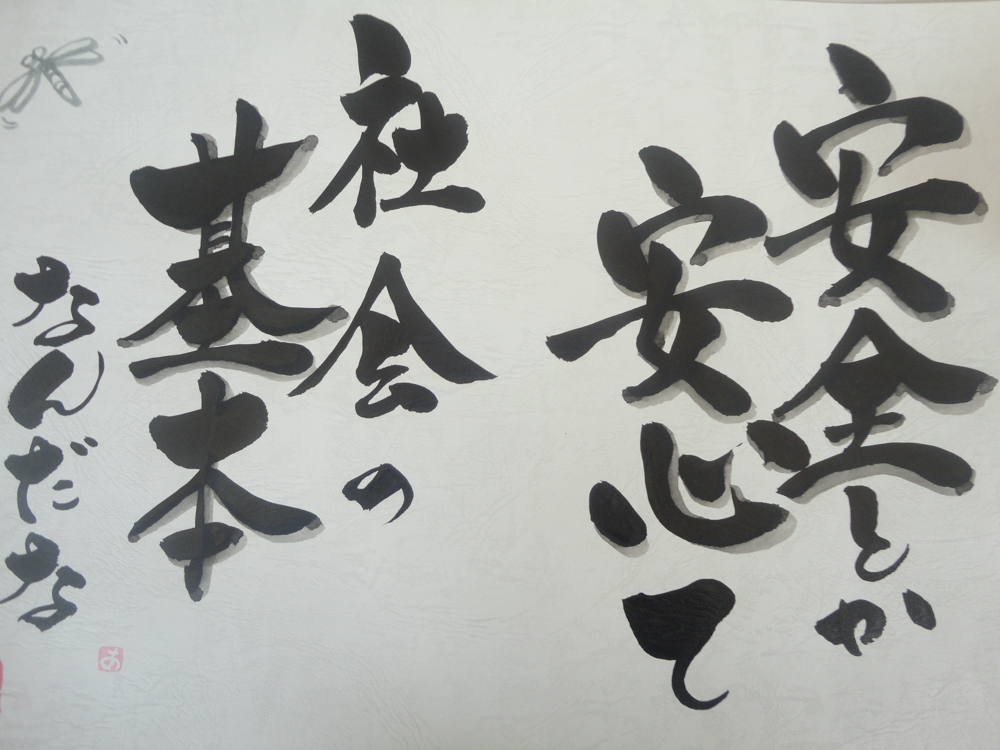 安全とか
安心て
社会の
基本
なんだな
お